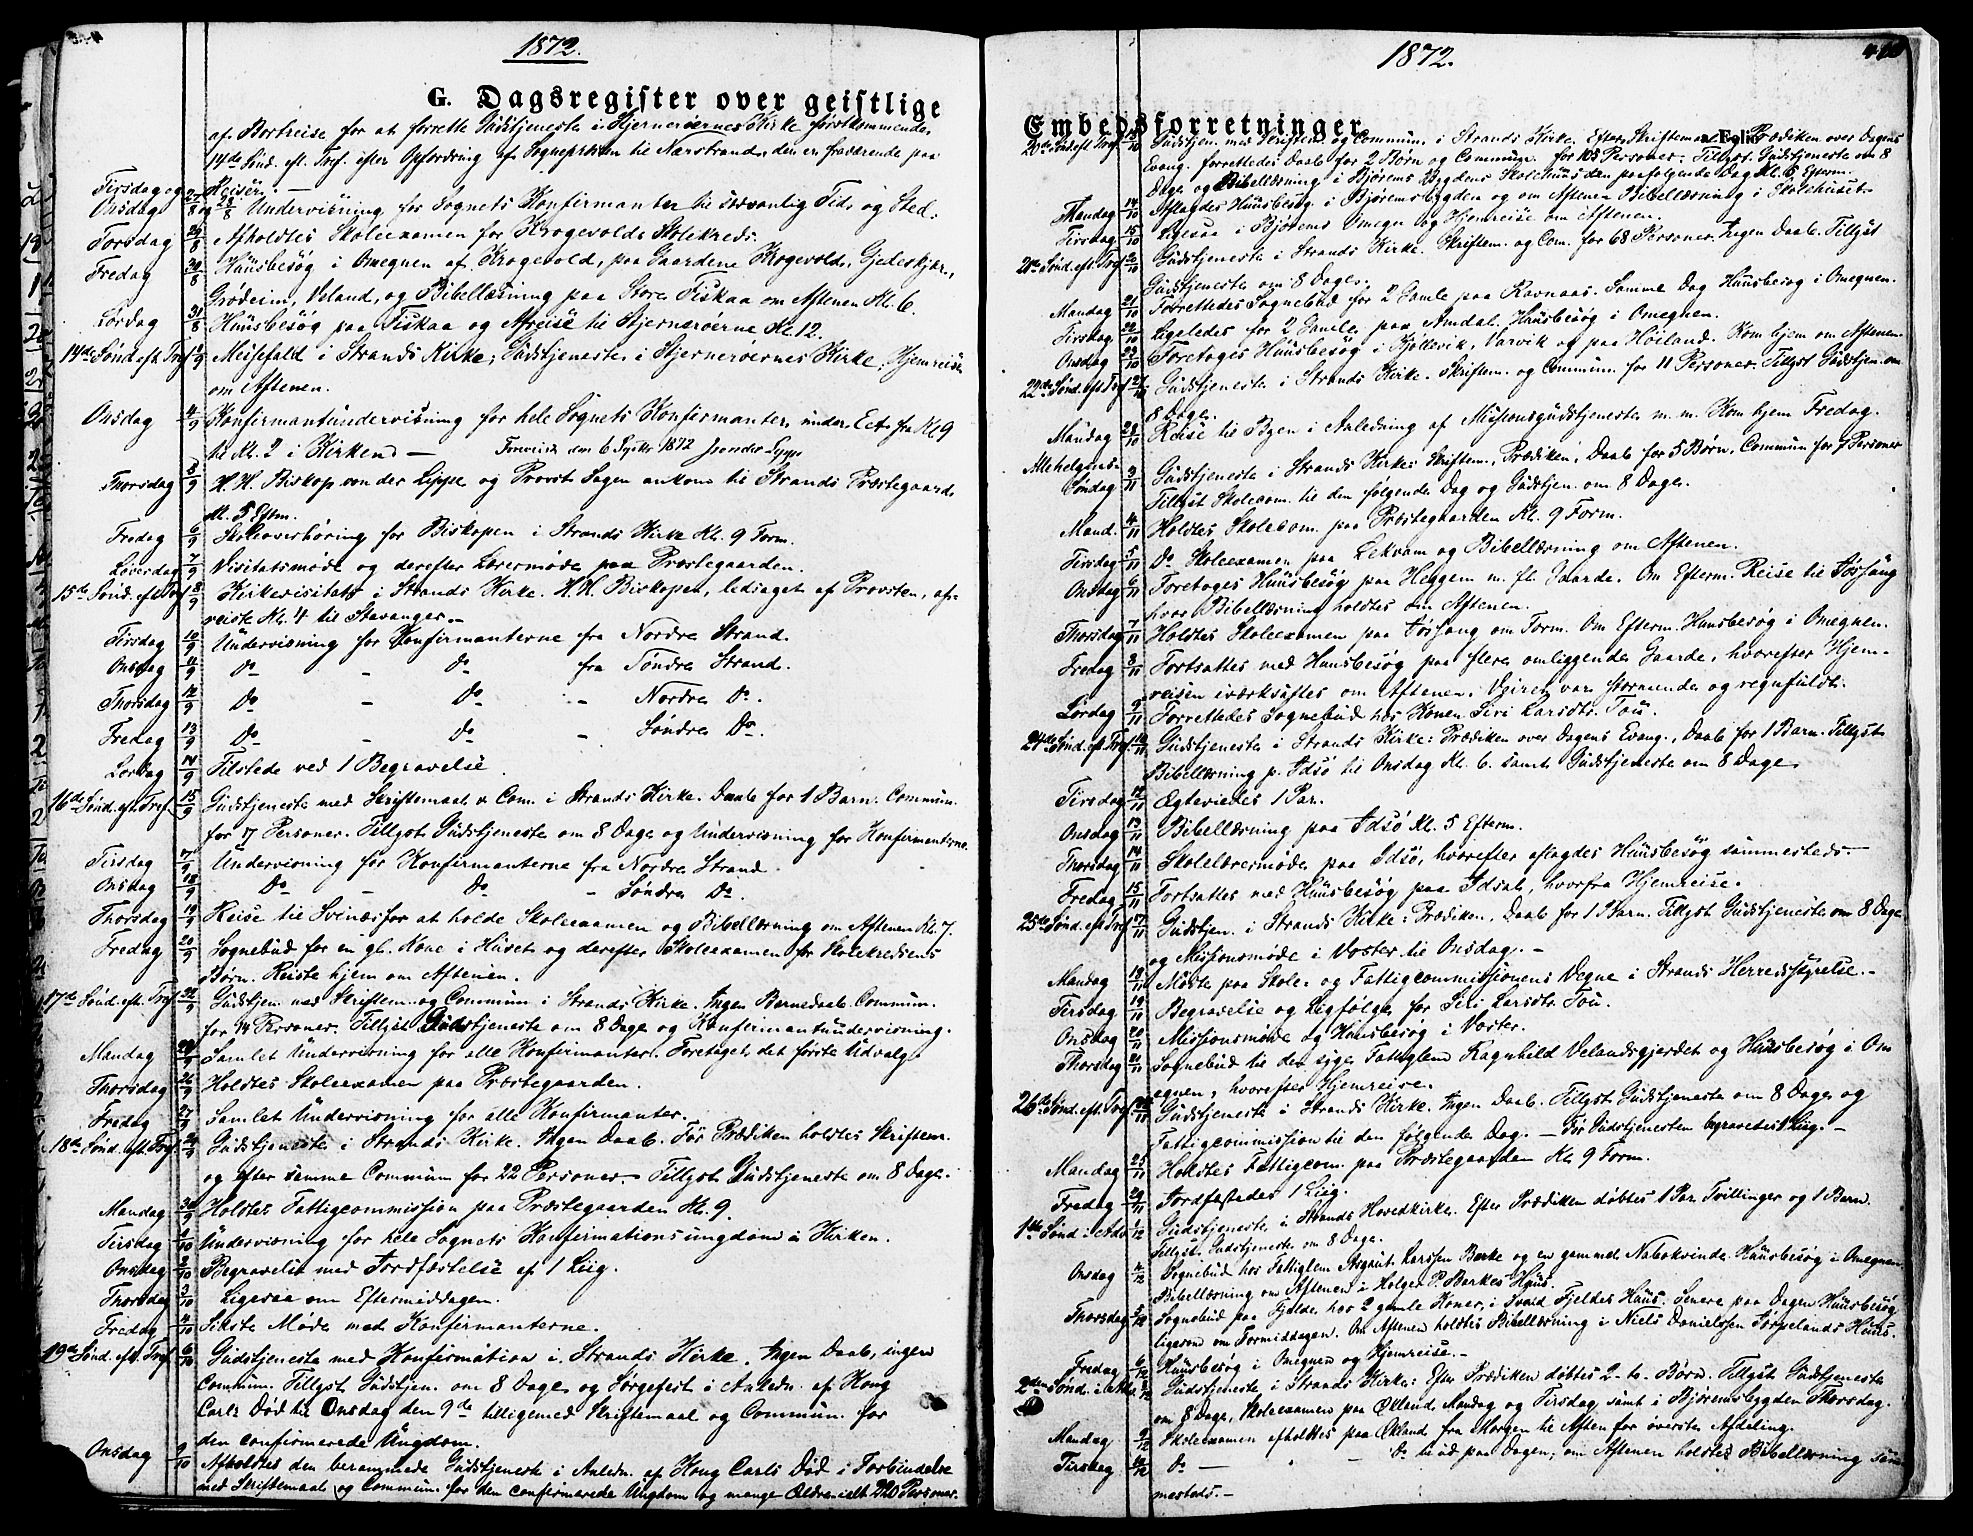 1872.
G. Dagsregister over geistlige
af Bortreise for at forrette Gudstjeneste i Hjernerøernes Kirke førstkommende
14de Sønd. eft. Tref. efter Opfordring af Sognepræsten til Nærstrand, den er fraværende paa
Reiser. —
Tirsdag og Onsdag 27/8 og 28/8 Undervisning for Sognets Konfirmanter til sædvanlig Tid og Sted.
Torsdag 29/8 Afholdtes Skoleexamen for Krogevolds Skolekreds.
Fredag 30/8 Huusbesøg i Omegnen af Krogevold, paa Gaardene Krogevold, Gjedeskjær,
Grødeim, Veland, og Bibellæsning paa Store Fiskaa om Aftenen Kl. 6.
Lørdag 31/8 Huusbesøg paa Fiskaa og Afreise til Hjernerøerne Kl. 12.
14de Sønd. eft. Tref. 1/9 Messefald i Strands Kirke; Gudstjeneste i Hjernerøernes Kirke, Hjemreise
om Aftenen.
Onsdag 4/9 Konfirmantundervisning for hele Sognets Konfirmanter under Eet fra Kl 9
til Kl. 2 i Kirken — Forevist den 6 Septbr 1872
Thorsdag H. H. Biskop von der Lippe og Provst Sagen ankom til Strands Præstegaard
Kl. 5 Eftm.
Fredag 6/9 Skoleoverhøring for Biskopen i Strands Kirke Kl. 9 Form.
Løverdag 7/9 Visitatsmøde og derefter Lærermøde paa Præstegaarden.
15de Sønd. eft. Tref. 8/9 Kirkevisitats i Strands Kirke. H. H. Biskopen, ledsaget af Provsten, af-
reiste Kl. 4 til Stavanger. —
Tirsdag 10/9 Undervisning for Konfirmanterne fra Nordre Strand.
Onsdag 11/9 Do - Do fra Søndre Strand.
Thorsdag 12/9 Do - Do - Nordre Do.
Fredag 13/9 Do - Do - Søndre Do.
Lørdag 14/9 Tilstede ved 1 Begravelse.
16de Sønd. eft. Tref. 15/9 Gudstjeneste med Skriftemaal & Com. i Strands Kirke. Daab for 1 Barn. Commun.
for 7 Personer. Tillyst Gudstjeneste om 8 Dage og Undervisning for Konfirmanterne.
Tirsdag 17/9 Undervisning for Konfirmanterne fra Nordre Strand
Onsdag 18/9 Do - Do - Søndre Do.
Thorsdag 19/9 Reise til Svinæs for at holde Skoleexamen og Bibellæsning om Aftenen Kl. 7.
Fredag 20/9 Sognebud for en gl. Kone i Huset og derefter Skoleexamen for Skolekredsens
Børn. Reiste hjem om Aftenen.
17de Sønd. eft. Tref. 22/9 Gudstjen. med Skriftem. og Commun i Strands Kirke. Ingen Barnedaab. Commun.
for 14 Personer. Tillyst Gudstjeneste om 8 Dage og Konfirmantundervisning.
Mandag Samlet Undervisning for alle Konfirmanter. Foretaget det første Udvalg.
Thorsdag 26/9 Holdtes Skoleexamen paa Præstegaarden.
Fredag 27/9 Samlet Undervisning for alle Konfirmanter.
18de Sønd. eft. Tref. 29/9 Gudstjeneste i Strands Kirke. Ingen Daab. Før Prædiken holdtes Skriftem.
og efter samme Commun for 22 Personer. — Tillyst Gudstjeneste om 8 Dage.
Mandag 30/9 Holdtes Fattigcommission paa Præstegaarden Kl. 9.
Tirsdag 1/10 Undervisning for hele Sognets Konfirmationsungdom i Kirken.
Onsdag 2/10 Begravelse med Jordfæstelse af 1 Liig.
Thorsdag 3/10 Ligesaa om Eftermiddagen.
Fredag 4/10 Sidste Møde med Konfirmanterne.
19de Sønd. eft. Tref. 6/10 Gudstjeneste med Konfirmation i Strands Kirke. Ingen Daab, ingen
Commun. Tillyst Gudstjen. om 8 Dage og Sørgefest i Anledn. af Kong
Carls Død til Onsdag den 9de tilligemed Skriftemaal og Commun. for
den confirmerede Ungdom.
Onsdag 9/10 Afholdtes den berammede Gudstjeneste i Anledn. af Kong Carls Død i Forbindelse
med Skriftemaal og Commun for den confirmerede Ungdom og mange Ældre, ialt 220 Personer.
1872.
Embedsforretninger
20de Sønd. eft. Tref. 13/10 Gudstjen. med Skriftem. og Commun. i Strands Kirke. Efter Skriftem. Prædiken over Dagens
Evang. forrettedes Daab for 2 Børn og Commun. for 105 Personer. Tillyst Gudstjeneste om 8
Dage og Bibellæsning i Bjørems Bygdens Skolehuus den paafølgende Dag Kl. 5 Efterm.
Mandag 14/10 Aflagdes Huusbesøg i Bjøremsbygden og om Aftenen Bibellæsning i Skolehuset.
Tirsdag 15/10 Ligesaa i Bjørems Omegn og Hjemreise om Aftenen.
21de Sønd. eft. Tref. 20/10 Gudstjeneste i Strands Kirke. Skriftem. og Com. for 68 Personer. Ingen Daab. Tillyst
Gudstjeneste om 8 Dage.
Mandag 21/10 Forrettedes Sognebud for 2 Gamle paa Ravnaas. Samme Dag Huusbesøg i Omegnen.
Tirsdag 22/10 Ligeledes for 2 Gamle paa Amdal. Huusbesøg i Omegnen.
Onsdag 23/10 Foretoges Huusbesøg i Fjellevik, Varvik og paa Høiland. Kom hjem om Aftenen.
22de Sønd. eft. Tref. 27/10 Gudstjeneste i Strands Kirke. Skriftem. og Commun. for 11 Personer. Tillyst Gudstjen. om
8 Dage.
Mandag 28/10 Reise til Byen i Anledning af Missionsgudstjeneste m. m. Kom hjem Fredag.
Allehelgens-
Søndag 3/11 Gudstjeneste i Strands Kirke: Skriftem., Prædiken, Daab for 5 Børn, Commun for 9 Personer
Tillyst Skolecom. til den følgende Dag og Gudstjen. om 8 Dage.
Mand. 4/11 Holdtes Skolecom. paa Præstegaarden Kl. 9 Form.
Tirsdag 5/11 Do Skoleexamen paa Lekvam og Bibellæsning om Aftenen.
Onsdag 6/11 Foretoges Huusbesøg paa Heggem m. fl. Gaarde. Om Efterm. Reise til Jøssang
hvor Bibellæsning holdtes om Aftenen.
Thorsdag 7/11 Holdtes Skoleexamen paa Jøssang om Form. Om Efterm. Huusbesøg i Omegnen.
Fredag 8/11 Fortsattes med Huusbesøg paa flere omliggende Gaarde, hvorefter Hjem-
reisen iværksattes om Aftenen. Veiret var stormende og regnfuldt.
Lørdag 9/11 Forrettedes Sognebud hos Konen Siri Larsdtr. Tou.
24de Sønd. eft. Tref. 10/11 Gudstjeneste i Strands Kirke: Prædiken over Dagens Evang., Daab for 1 Barn. Tillyst
Bibellæsning p. Idsø til Onsdag Kl. 6. samt Gudstjeneste om 8 Dage.
Tirsdag 12/11 Ægteviedes 1 Par.
Onsdag 13/11 Bibellæsning paa Idsø Kl. 5 Efterm.
Thorsdag 14/11 Skolelærermøde paa Idsø, hvorefter aflagdes Huusbesøg sammesteds. —
Fredag 15/11 Fortsattes med Huusbesøg paa Idsal, hvorfra Hjemreise.
25de Sønd. eft. Tref. 17/11 Gudstjen. i Strands Kirke: Prædiken, Daab for 1 Barn. Tillyst Gudstjeneste om 8 Dage
og Missionsmøde i Voster til Onsdag. —
Mandag 18/11 Mødte paa Skole- og Fattigcommissionens Vegne i Strands Herredsstyrelse. —
Tirsdag 19/11 Begravelse og Ligfølge for Siri Larsdtr Tou.
Onsdag 20/11 Missionsmøde og Huusbesøg i Voster.
Thorsdag 21/11 Sognebud til den syge Fattiglem Ragnhild Velandsgjerdet og Huusbesøg i Om
egnen, hvorefter Hjemreise.
26de Sønd. eft. Tref. 24/11 Gudstjeneste i Strands Kirke. Ingen Daab. Tillyst Gudstjeneste om 8 Dage og
Fattigcommission til den følgende Dag. — Før Gudstjenesten begravedes 1 Liig. —
Mandag 25/11 Holdtes Fattigcom. paa Præstegaarden Kl. 9 Form.
Fredag 29/11 Jordfæstedes 1 Liig.
1ste Sønd. i Adv. 1/12 Gudstjeneste i Strands Hovedkirke. Efter Prædiken døbtes 1 Par Tvillinger og 1 Barn.
Tillyst Gudstjeneste om 8 Dage.
Onsdag 4/12 Sognebud hos Fattiglem Asgrut Larsen Barke og en gammel Nabokvinde. Huusbesøg i Omegnen
Bibellæsning om Aftenen i Holger P. Barkes Huus.
Thorsdag 5/12 Sognebud paa Fjelde, hos 2 gamle Koner, i Svend Fjeldes Huus. Senere paa Dagen Huusbesøg
ligesom om Formiddagen. Om Aftenen holdtes Bibellæsning i Niels Danielsen Sørpelands Huus.
Fredag 6/12 Huusbesøg i Omegnen og Hjemreise. —
2den Sønd. i Adv. 8/12 Gudstjeneste i Strands Kirke: Efter Prædiken døbtes 2-to Børn. Tillyst Gudstjeneste
om 8 Dage, Skoleexamen paa Økland Mandag og Tirsdag, samt i Bjøremsbygden Thorsdag.
Mandag 9/12 Skoleexamen afholdtes paa Økland fra Morgen til Aften for øverste Afdeling.
Tirsdag 10/12 Do — - — Do tilud paa Dagen; om Aftenen holdtes Bibellæsning sam
mesteds. —